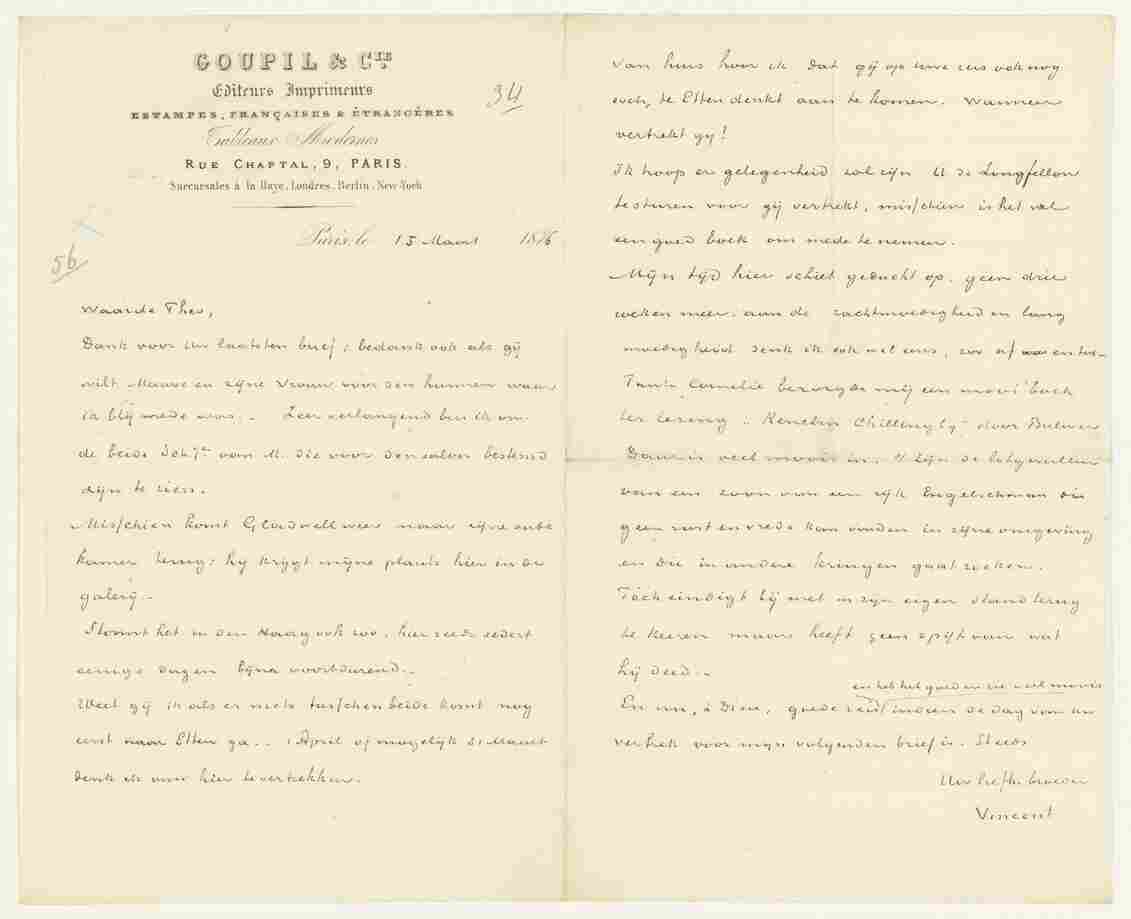 GOUPIL & Cie
Editeurs Imprimeurs
ESTAMPES, FRANÇAISES & ÉTRANGÈRES
Tableaux Modernes
RUE CHAPTAL, 9, PARIS.
Succursales à la Haye, Londres, Berlin, New-York
34
Paris, le 15 Maart 1876
56
Waarde Theo,
Dank voor Uw laatsten brief; bedank ook als gij
wilt Mauve en zijne vrouw voor den hunnen waar
ik blij mede was. Zeer verlangend ben ik om
de beide Schijen van M. die voor den salon bestemd
zijn te zien.
Misschien komt Gladwell weer naar zijne oude
kamer terug; hij krijgt mijne plaats hier in de
galerij.
Stormt het in den Haag ook zoo, hier reeds sedert
eenige dagen bijna voortdurend.
Weet gij ik als er niets tusschenbeide komt nog
eerst naar Etten ga. 1 April of mogelijk 31 Maart
denk ik van hier te vertrekken.
Van huis hoor ik dat gij op uwe reis ook nog
te Etten denkt aan te komen. Wanneer
vertrekt gij!
Ik hoop er gelegenheid zal zijn U de Longfellow
te sturen voor gij vertrekt, misschien is het wel
een goed boek om mede te nemen.
Mijn tijd hier schiet geducht op, geen drie
weken meer. aan de zachtmoedigheid en lang
moedigheid denk ik ook wel eens, zoo af en toe.
Tante Cornelie bezorgde mij een mooi boek
ter lezing: "Kenelm Chillingly" door Bulwer
Daar is veel moois in. 't Zijn de lotgevallen
van een zoon van een rijk Engelschman die
geen rust en vrede kon vinden in zijne omgeving
en die in andere kringen gaat zoeken.
Toch eindigt hij met in zijn eigen stand terug
te keeren maar heeft geen spijt van wat
hij deed.
en heb het goed en zie veel moois
En nu, à Dieu, goede reis indien de dag van uw
vertrek voor mijn volgenden brief is. Steeds
Uw liefh. broeder
Vincent